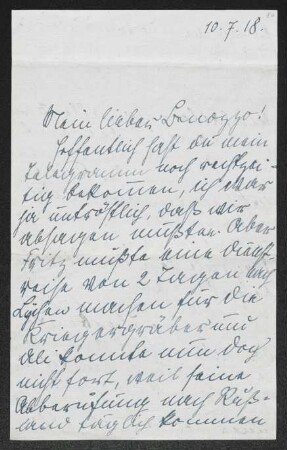 10.7.18.
Mein lieber Benozzo!
Hoffentlich hast du mein
Telegramm noch rechtzei-
tig bekommen, ich war
ja untröstlich, daß wir
absagen mußten. Aber
Fritz mußte eine Dienst-
reise von 2 Tagen nach
machen für die
Kriegergräber und
konnte nun doch
nicht fort, weil seine
Abberufung nach Ruß-
land täglich kommen